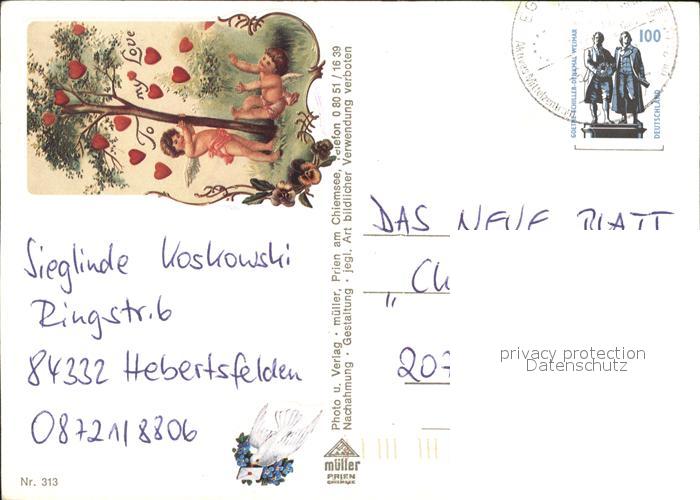 To my Love
Sieglinde Koskowski
Ringstr. 6
84332 Hebertsfelden
08721/8806
Nr. 313
Photo u. Verlag · müller, Prien am Chiemsee, Telefon 0 80 51 / 16 39
Nachahmung · Gestaltung · jegl. Art bildlicher Verwendung verboten
müller
PRIEN
CHIEMSEE
100
GOETHE-SCHILLER-DENKMAL WEIMAR
DEUTSCHLAND
DAS NEUE BLATT
„Ch
207
privacy protection
Datenschutz